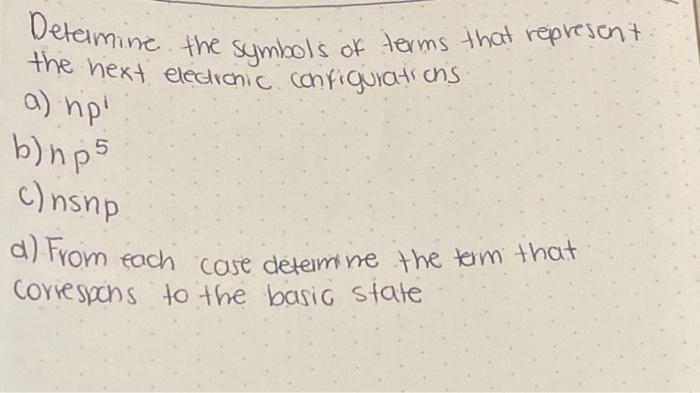 Determine the symbols of terms that represent
the next electronic configurations
a) np¹
b) np⁵
c) nsnp
d) From each case determine the term that
correspons to the basic state